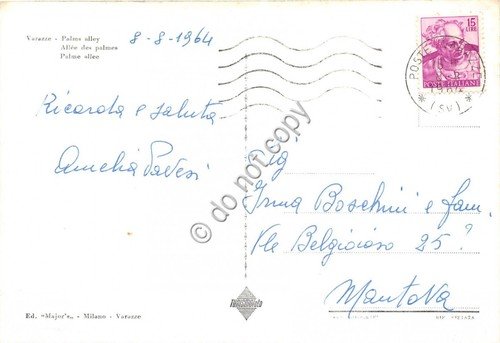 Varazze - Palms alley
Allée des palmes
Palme allee
8-8-1964
15
LIRE
POSTE ITALIANE
POSTE
(SV)
Ricorda e saluta
Amelia Pavesi
© do not copy
Sig.
Irma Boschini e fam.
Vle Belgioioso 25?
Mantova
Ed. "Major's" - Milano - Varazze